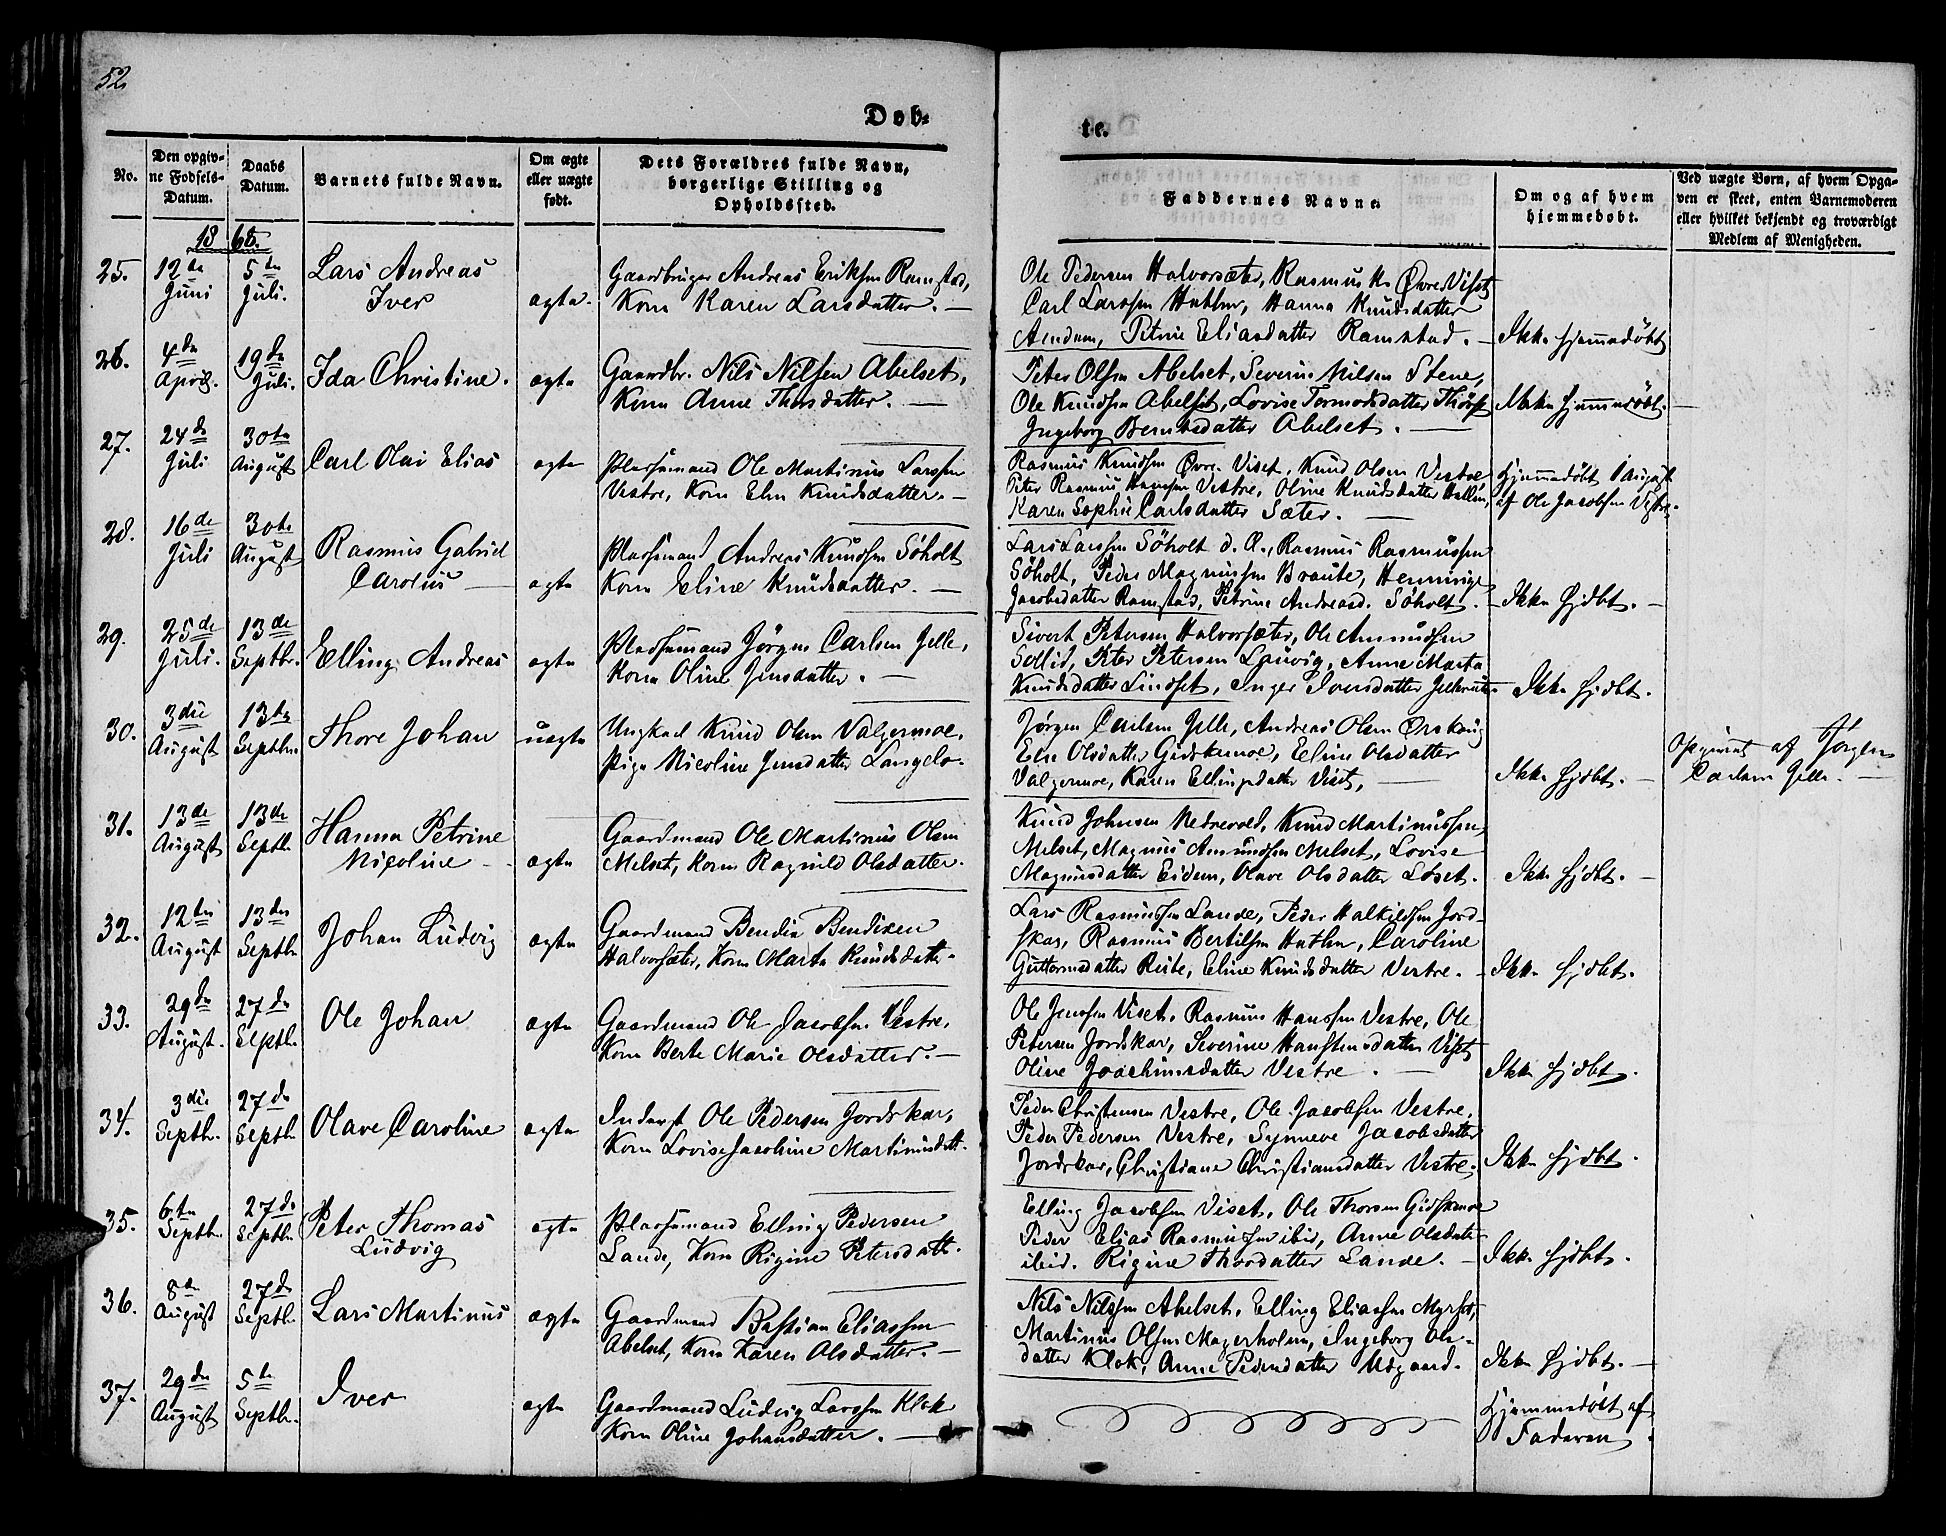 52
Døb-
te.
No.
Den opgiv-
ne Fødsels-
Datum.
Daabs
Datum.
Barnets fulde Navn.
Om ægte
eller uægte
født.
Dets Forældres fulde Navn,
borgerlige Stilling og
Opholdssted.
Faddernes Navne.
Om og af hvem
hjemmedøbt.
Ved uægte Børn, af hvem Opga-
ven er skeet, enten Barnemoderen
eller hvilket bekjendt og troværdigt
Medlem af Menigheden.
25.
12te
Juni
5te
Juli.
Lars Andreas
Iver
ægte.
Gaardbruger Andreas Eriksen Ramstad,
Kone Karen Larsdatter. —
Ole Pedersen Halvorsæter, Rasmus K. Øvre Viset
Carl Larssen Hatlen, Hanna Knudsdatter
Amdam, Petrine Eliasdatter Ramstad. —
Ikke hjemmedöbt
26.
4de
April.
19de
Juli.
Ida Christine.
ægte
Gaardbr. Nils Nilsen Abelset,
Kone Anne Thorsdatter. —
Peter Olsen Abelset, Severin Nilsen Stene,
Ole Knudsen Abelset, Lovise Tormodsdatter
Ingeborg Berntsdatter Abelset. —
Ikke hjemmedöbt. —
27.
24de
Juli
30te
August
Carl Olai Elias
ægte
Pladsemand Ole Martinus Larssen
Vestre, Kone Elen Knudsdatter. —
Rasmus Knudsen Øvre Viset, Knud Olsen Vestre,
Peter Rasmus Hanssen Vestre, Oline Knudsdatter
Karen Sophie Carlsdatter Sæter. —
Hjemmedöbt August
af Ole Jacobsen Vestre.
28.
16de
Juli
30te
August
Rasmus Gabriel
Carolus —
ægte
Pladsemand Andreas Knudsen Söholt
Kone Eline Knudsdatter. —
Lars Larssen Söholt d. Æ., Rasmus Rasmussen
Söholt, Peder Magnussen Braute,
Jacobsdatter Ramstad, Petrine Andreasd. Söholt. —
Ikke hjdbt. —
29.
25de
Juli.
13de
Septbr.
Elling Andreas
ægte
Pladsemand Jörgen Carlsen Gjelle,
Kone Oline Jensdatter. —
Sivert Petersen Halvorsæter, Ole Amundsen
Sollid, Peter Petersen Lauvig, Anne Marta
Knudsdatter Lindset, Inger Jonsdatter
Ikke hjdbt.
30.
3die
August
13te
Septbr.
Thore Johan
uægte
Ungkarl Knud Olsen Valgermoe,
Pige Nicoline Jensdatter Langelo.
Jörgen Carlsen Gjelle, Andreas Olsen Ørskoug
Else Olsdatter Gidskemoe, Eline Olsdatter
Valgermoe, Karen Ellingsdatter Viset, —
Ikke hjdbt. —
Opgivet af Jörgen
Carlsen Gjelle. —
31.
13de
August
13de
Septbr.
Hanna Petrine
Nicoline —
ægte
Gaardmand Ole Martinus Olsen
Melset, Kone Ragnild Olsdatter.
Knud Johnsen Nedrevold, Knud Martinussen
Melset, Magnus Amundsen Melset, Lovise
Magnusdatter Eidem, Olave Olsdatter Löset.
Ikke hjdbt. —
32.
12te
August
13de
Septbr.
Johan Ludvig
ægte
Gaardmand Bendix Bendixen
Halvorsæter, Kone Marta Knudsdatter.
Lars Rasmussen Lande, Peder Halkildsen Jord-
skar, Rasmus Bertilsen Hatlen, Caroline
Guttormsdatter Reite, Eline Knudsdatter Vestre. —
Ikke hjdbt.
33.
29de
August.
27de
Septbr.
Ole Johan
ægte
Gaardmand Ole Jacobsen Vestre,
Kone Berte Marie Olsdatter. —
Ole Jenssen Viset, Rasmus Hanssen Vestre, Ole
Petersen Jordskar, Severine datter Viset
Oline Joachimsdatter Vestre. —
Ikke hjdbt.
34.
3die
Septbr.
27de
Septbr.
Olave Caroline
ægte
Inderst Ole Pedersen Jordskar,
Kone Lovise Jacobine Martinusdatt.
Peder Christensen Vestre, Ole Jacobsen Vestre,
Peder Pedersen Vestre, Synneve Jacobsdatter
Jordskar, Christiane Christiansdatter Vestre.
Ikke hjdbt.
35.
6te
Septbr.
27de
Septbr.
Peter Thomas
Ludvig
ægte
Pladsemand Elling Pedersen
Lande, Kone Rigine Petersdatt.
Elling Jacobsen Viset, Ole Thorsen Gidskemoe
Peder Elias Rasmussen ibid, Anne Olsdatter
ibid. Rigine Thorsdatter Lande. —
Ikke hjdbt.
36.
8de
August
27de
Septbr.
Lars Martinus
ægte
Gaardmand Bastian Eliassen
Abelset, Kone Karen Olsdatter. —
Nils Nilssen Abelset, Elling Eliassen Myrset,
Martinus Olsen Magerholm, Ingeborg Ols-
datter Klok, Anne Pedersdatter Udgaard.
Ikke hjdbt. —
37.
29de
August
5te
Septbr.
Iver
ægte
Gaardmand Ludvig Larssen Klok
Kone Oline Johansdatter. —
Hjemmedöbt af
Faderen.